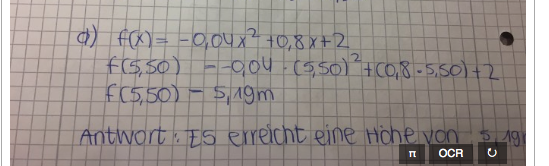 d) f(x) = -0,04x² +0,8x+2
f(5,50) = -0,04 · (5,50)² +(0,8 · 5,50)+2
f(5,50) = 5,19m
Antwort: ES erreicht eine Höhe von 5,19
π OCR ↻